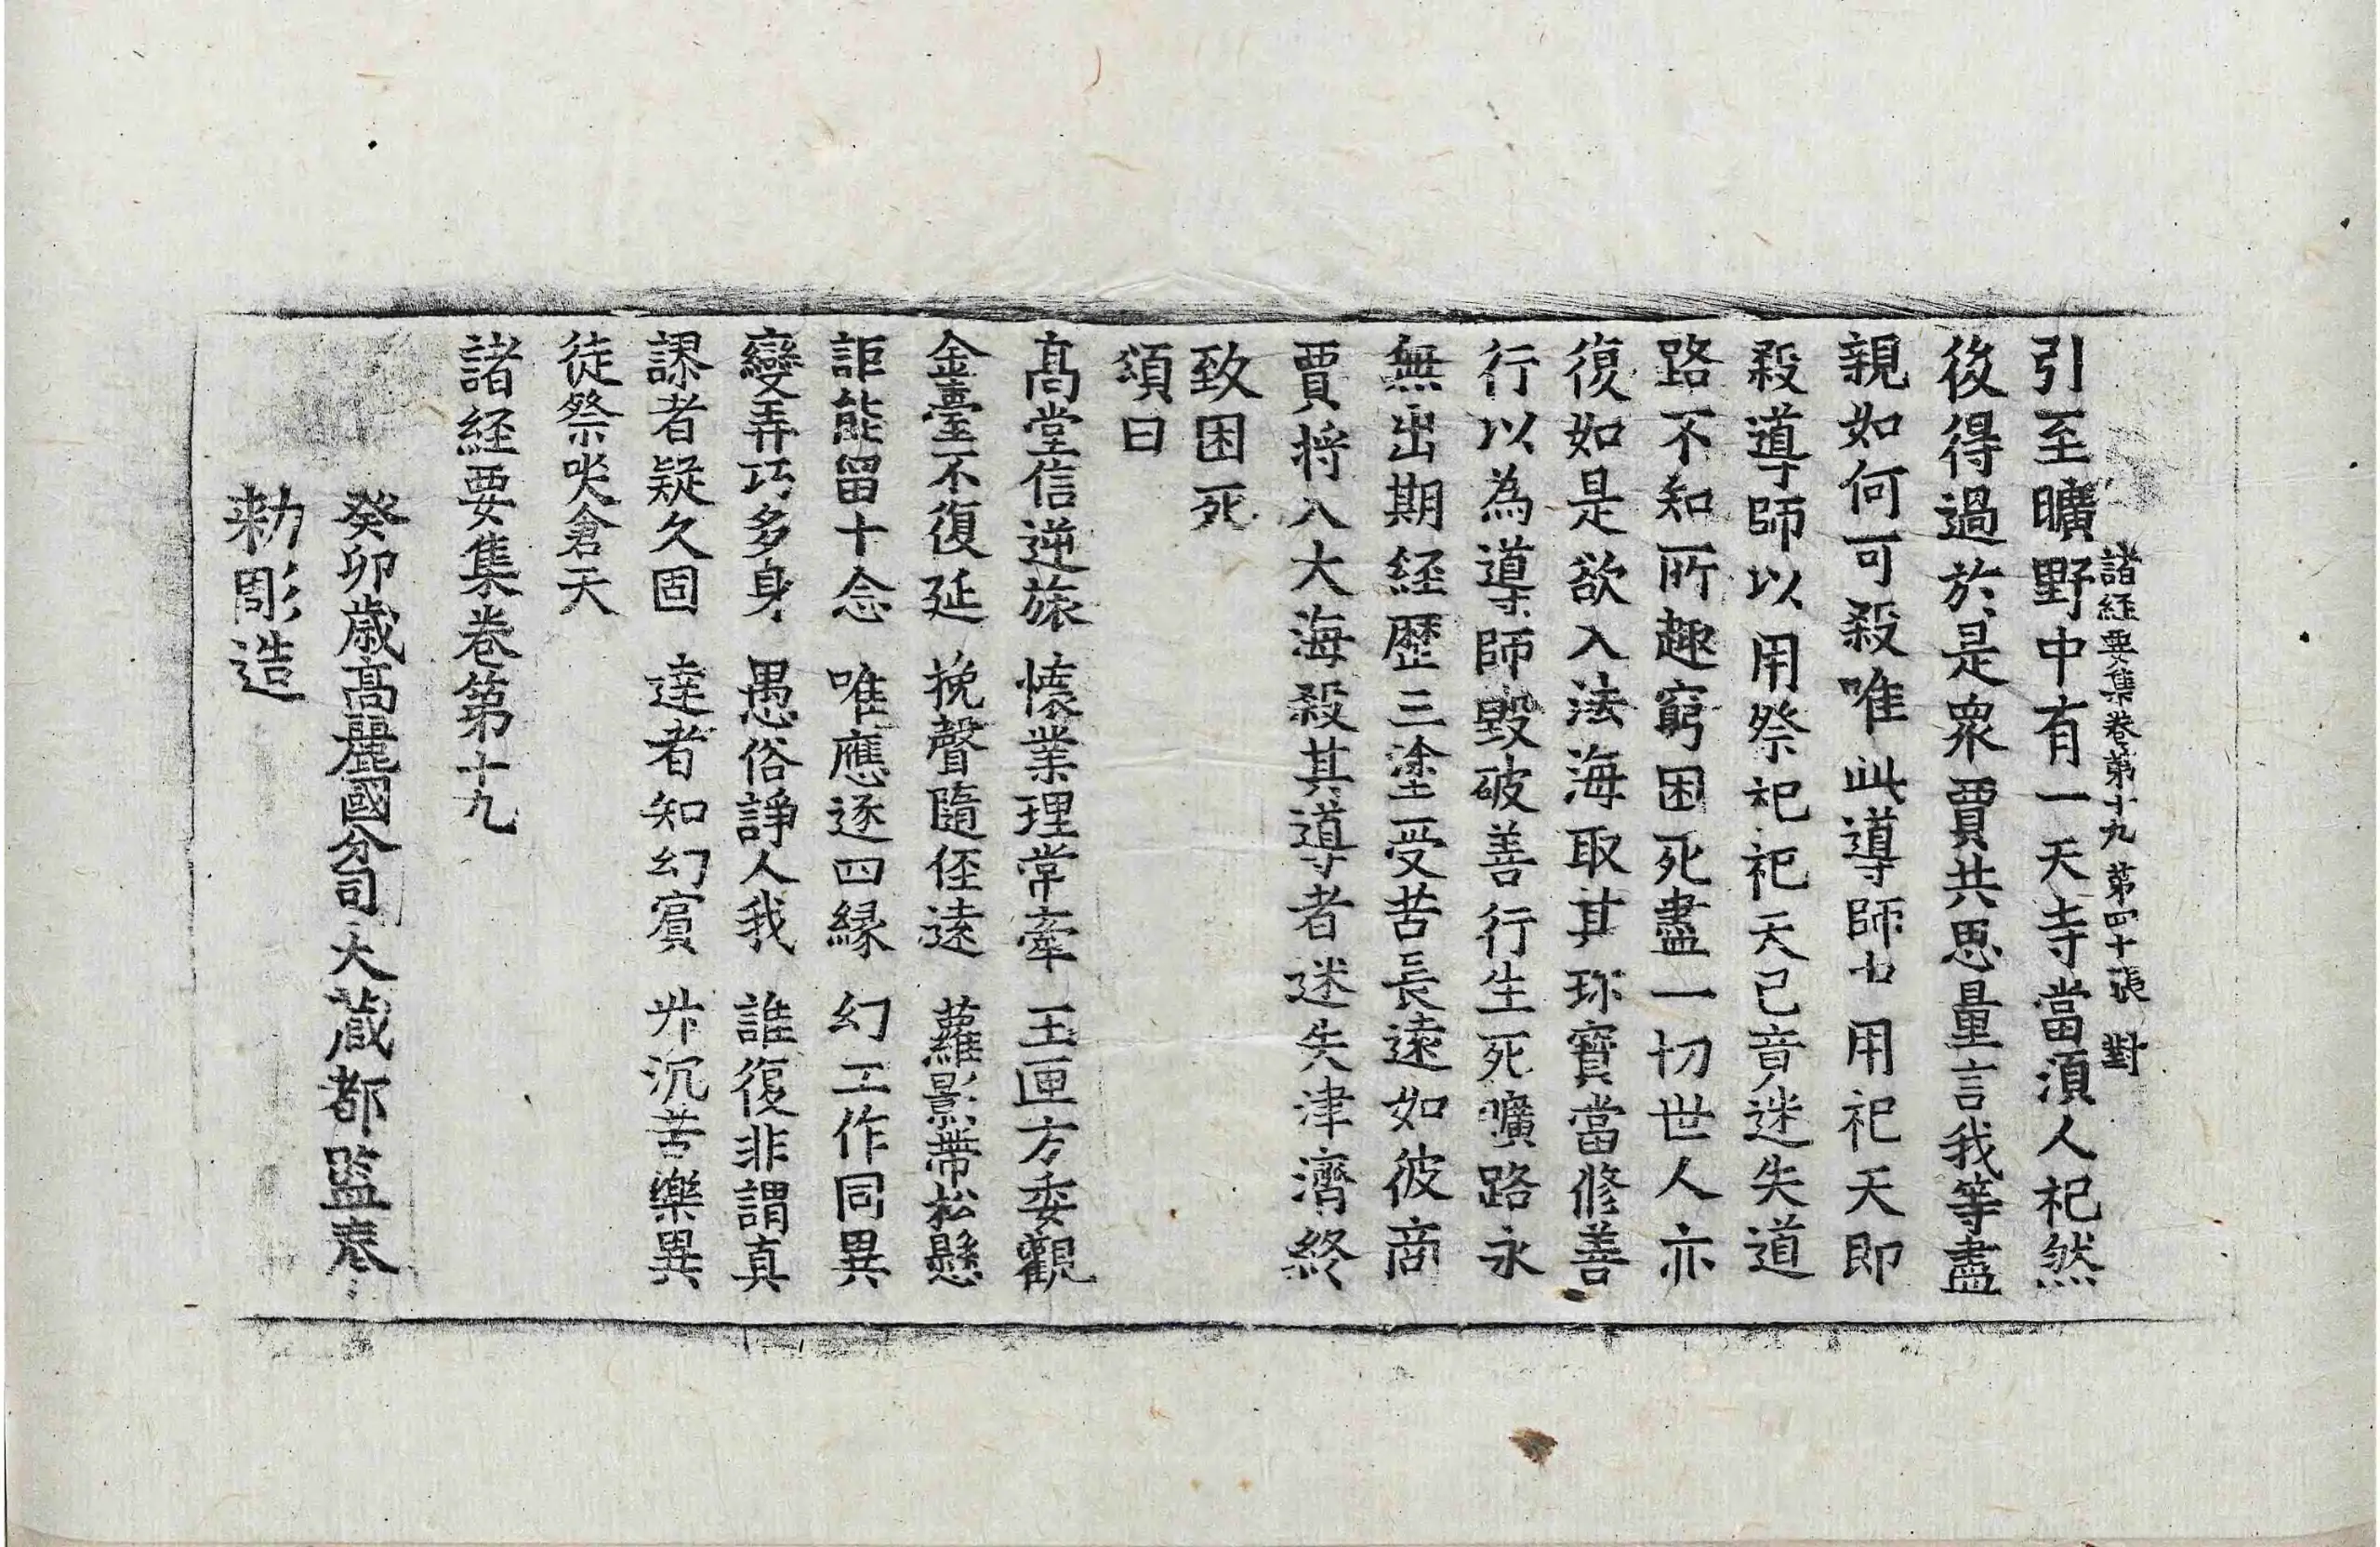 諸経要集卷第十九 第四十張 對
引至曠野中有一天寺當湏人祀然
後得過於是衆賈共思量言我等盡
親如何可殺唯此導師中用祀天即
殺導師以用祭祀祀天已竟迷失道
路不知所趣窮困死盡一切世人亦
復如是欲入法海取其珎寶當修善
行以為導師毀破善行生死曠路永
無出期經歷三塗受苦長遠如彼商
賈将入大海殺其導者迷失津濟終
致困死
頌曰
高堂信逆旅 懐業理常牽 玉匣方委觀
金臺不復延 挽聲隨侄遠 蘿影帶松懸
詎能留十念 唯應逐四縁 幻工作同異
變弄巧多身 愚俗諍人我 誰復非謂真
謬者疑久固 達者知幻賔 升沉苦樂異
徒祭哭倉天
諸経要集卷第十九
癸卯歳高麗國分司大蔵都監奉
勑彫造